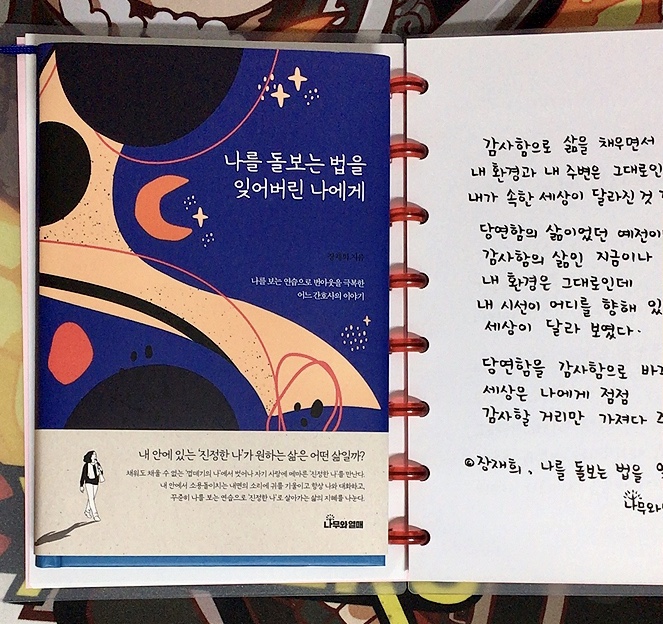 나를 돌보는 법을
잊어버린 나에게
장재희 지음
나를 보는 연습으로 번아웃을 극복한
어느 간호사의 이야기
내 안에 있는 '진정한 나'가 원하는 삶은 어떤 삶일까?
채워도 채울 수 없는 '껍데기의 나'에서 벗어나 자기 사랑에 메마른 '진정한 나'를 만난다.
내 안에서 소용돌이치는 내면의 소리에 귀를 기울이고 항상 나와 대화하고,
꾸준히 나를 보는 연습으로 '진정한 나'로 살아가는 삶의 지혜를 나눈다.
나무와열매
감사함으로 삶을 채우면서
내 환경과 내 주변은 그대로인
내가 속한 세상이 달라진 것
당연함의 삶이었던 예전이
감사함의 삶인 지금이나
내 환경은 그대로인데
내 시선이 어디를 향해 있
세상이 달라 보였다.
당연함을 감사함으로 바
세상은 나에게 점점
감사할 거리만 가져다
©장재희, 나를 돌보는 법을
나무와